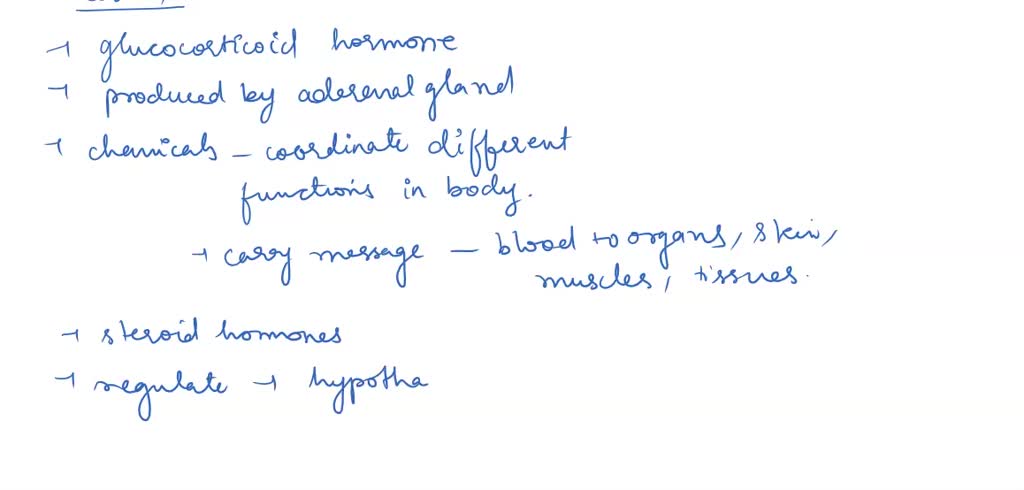 → glucocorticoid hormone
→ produced by adrenal gland
→ chemicals – coordinate different
functions in body.
→ carry message – blood to organs, skin,
muscles, tissues.
→ steroid hormones
→ regulate → hypotha